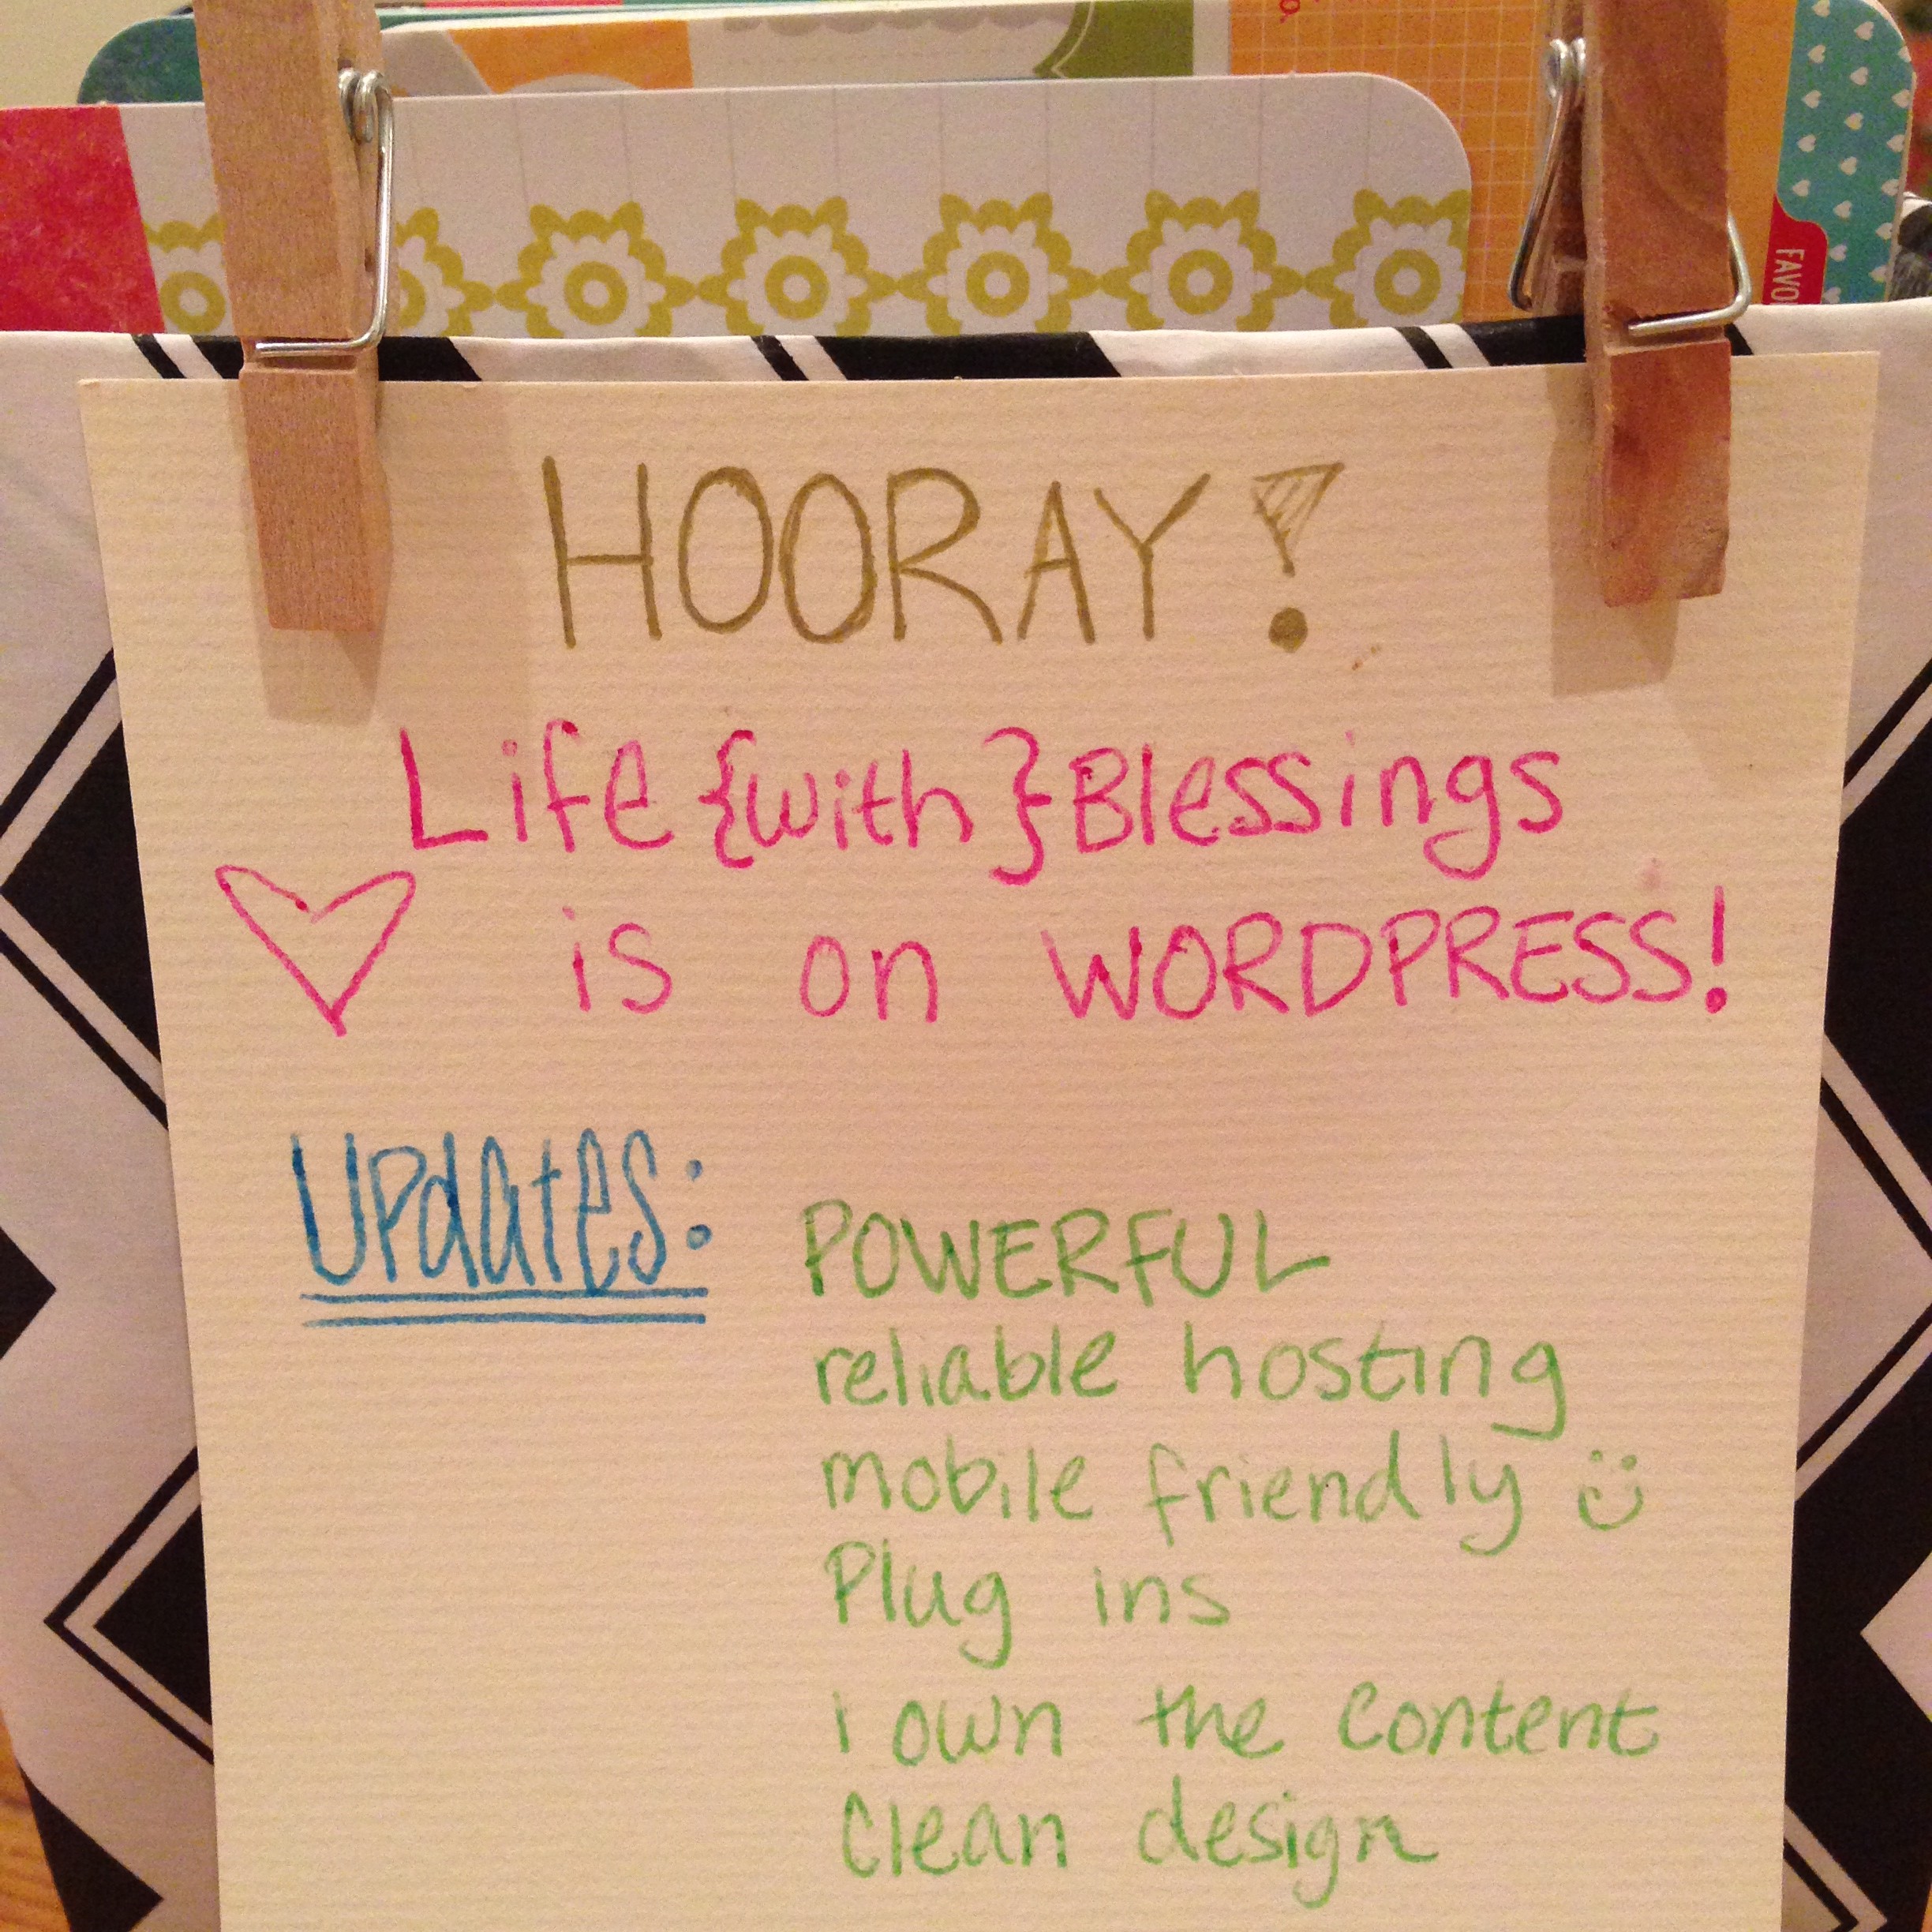 FAVO
HOORAY!
Life {with} Blessings
is on WORDPRESS!
Updates:
POWERFUL
reliable hosting
mobile friendly
Plug ins
i own the content
Clean design